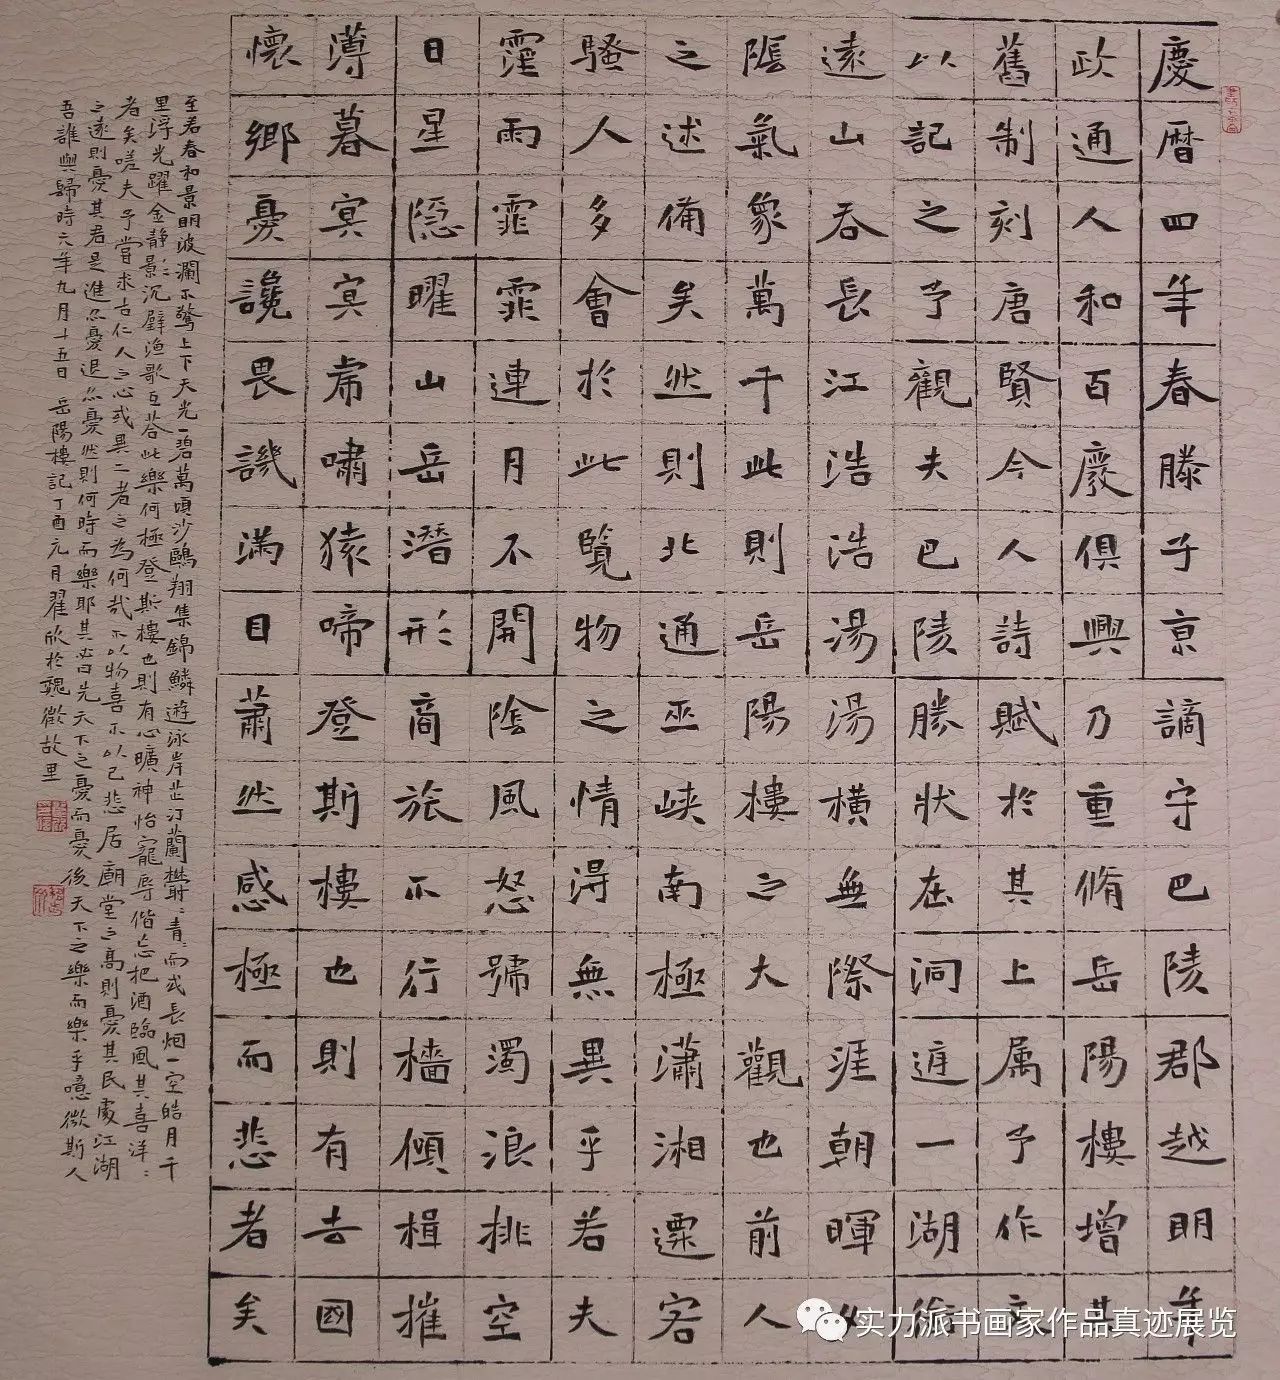 慶暦四年春滕子京謫守巴陵郡越明年
政通人和百廢俱興乃重脩岳陽樓增其
舊制刻唐賢今人詩賦於其上属予作文
以記之予觀夫巴陵勝狀在洞庭一湖銜
遠山吞長江浩浩湯湯橫無際涯朝暉夕
陰氣象萬千此則岳陽樓之大觀也前人
之述備矣然則北通巫峽南極瀟湘遷客
騷人多會於此覽物之情得無異乎若夫
霪雨霏霏連月不開陰風怒號濁浪排空
日星隱曜山岳潛形商旅不行檣傾楫摧
薄暮冥冥虎嘯猿啼登斯樓也則有去國
懷鄉憂讒畏譏滿目蕭然感極而悲者矣
至若春和景明波瀾不驚上下天光一碧萬頃沙鷗翔集錦鱗遊泳岸芷汀蘭鬱:青:而或長烟一空皓月千
里浮光躍金静影沉璧漁歌互荅此樂何極登斯樓也則有心曠神怡寵辱偕忘把酒臨風其喜洋:
者矣嗟夫予嘗求古仁人之心或異二者之為何哉不以物喜不以己悲居廟堂之高則憂其民處江湖
之遠則憂其君是進亦憂退亦憂然則何時而樂耶其必曰先天下之憂而憂後天下之樂而樂乎噫微斯人
吾誰與歸時六年九月十五日 岳陽樓記丁酉元月翟欣於魏徵故里
实力派书画家作品真迹展览